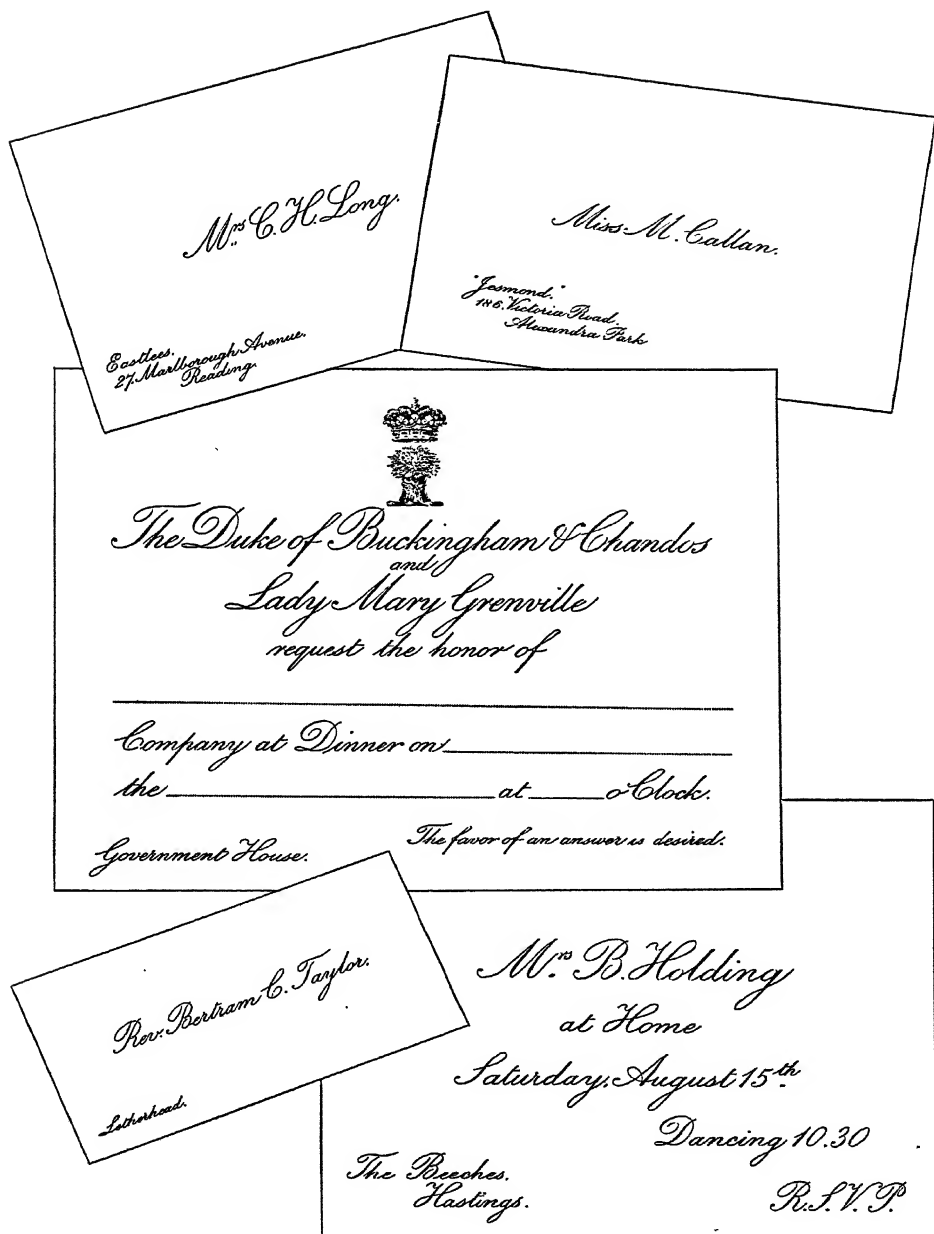 Mrs. C. H. Long.
Eastlees.
27, Marlborough Avenue.
Reading.
Miss. M. Callan.
"Jesmond."
186. Victoria Road.
Alexandra Park
The Duke of Buckingham & Chandos
and
Lady Mary Grenville
request the honor of
Company at Dinner on
the at o'Clock.
Government House.
The favor of an answer is desired.
Rev. Bertram C. Taylor.
Letherhead.
Mrs. B. Holding
at Home
Saturday, August 15th.
Dancing 10.30
The Beeches.
Hastings.
R.S.V.P.